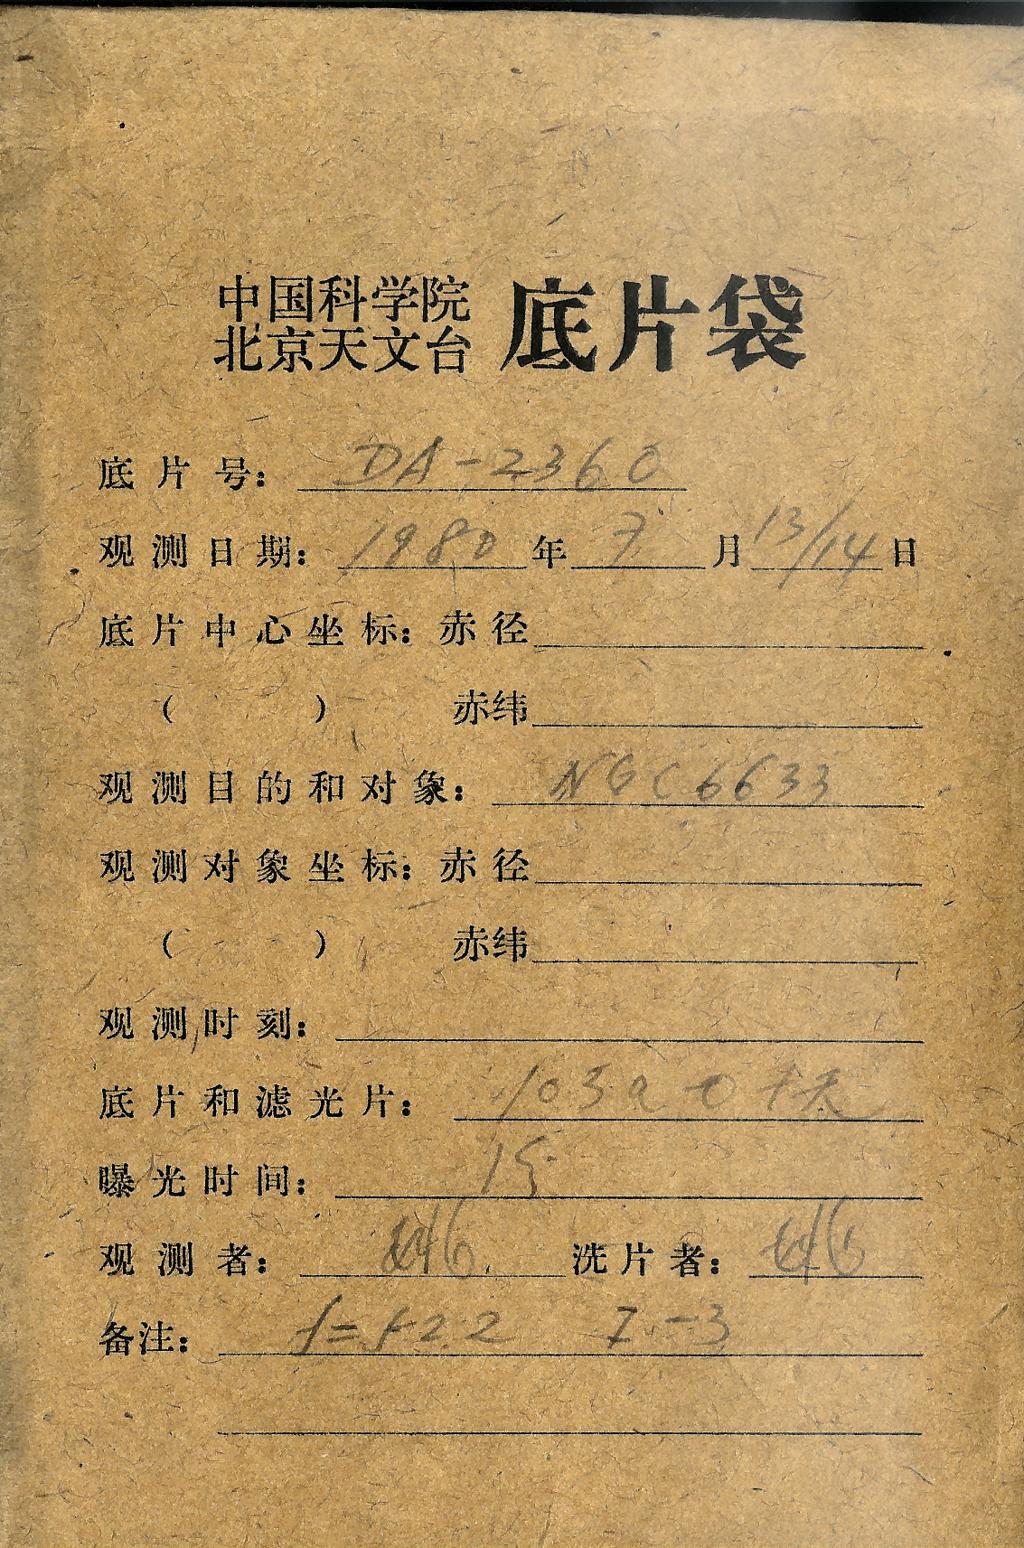 中国科学院
北京天文台 底片袋
底片号: DA-2360
观测日期: 1980年7月13/14日
底片中心坐标: 赤径
( ) 赤纬
观测目的和对象: NGC6633
观测对象坐标: 赤径
( ) 赤纬
观测时刻:
底片和滤光片: 103a
曝光时间: 15
观测者: 洗片者:
备注: f=522 7-3